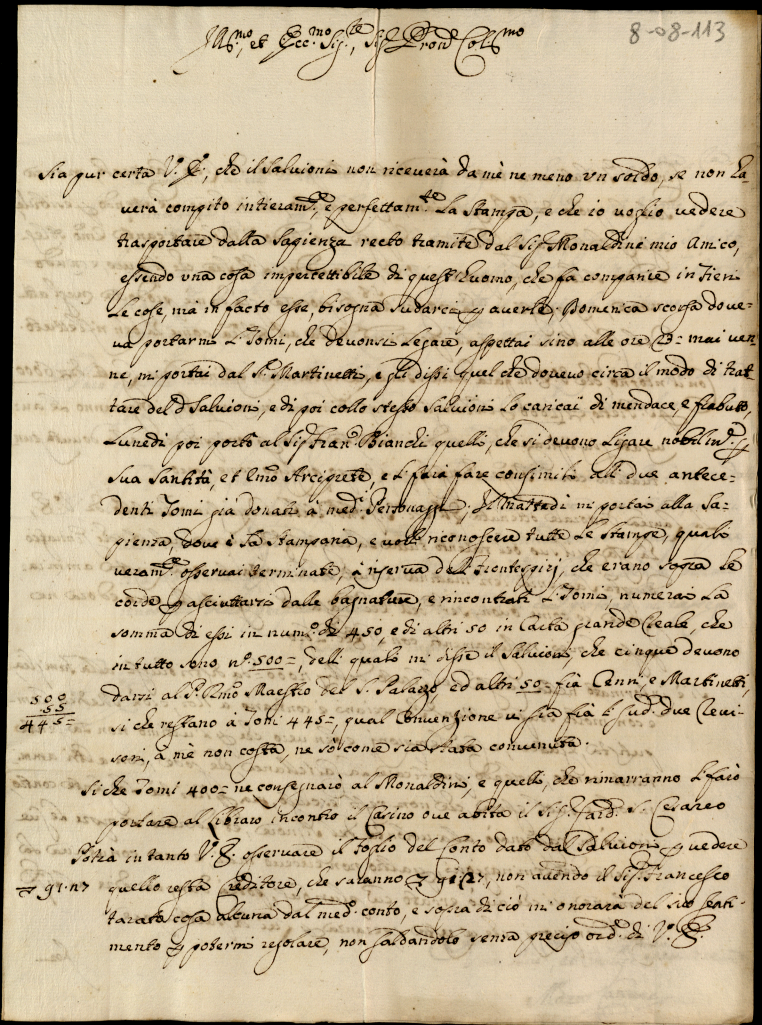 8-08-113
Ill.mo, et Ecc.mo Sig.re, Sig. Pron. Col.mo
Sia pur certa V. E., che il Salvioni non riceverà da mè ne meno un soldo, se non ha-
verà compito intieram.te, e perfettam.te La Stampa, e che io voglio vedere
trasportare dalla Sapienza recto tramite dal Sig. Monaldini mio Amico,
essendo una cosa impercettibile di quest'huomo, che fa comparire in Fieri
Le cose, mà in facto esse, bisogna sudarci p averle. Domenica scorsa dove-
va portarmi L Tomi, che devonsi Legare, aspettai sino alle ore 23= mai ven-
ne, mi portai dal S. Martinetti, e gli dissi quel che dovevo circa il modo di trat-
tare del d Salvioni, e di poi collo stesso Salvioni Lo caricai di mendace, e frabutto,
Lunedi poi portò al Sig. Fran. Bianchi quelli, che si devono Ligare nobilm.e p
Sua Santità, et Emo Arciprete, e L farà fare consimili alli due antece-
denti Tomi già donati à med. Personaggi; Il Mattedi mi portai alla Sa-
pienza, dove è La Stamparia, e volli riconoscere tutte Le Stampe, quali
veram.te osservai terminate, à riserva delli Frontespizj, che erano sopra Le
corde p asciuttarsi dalle bagnature, e rincontrati L Tomi, numerai La
somma di essi in num. di 450, e di altri 50 in Carta grande Reale, che
in tutto sono n. 500=, delli quali mi disse il Salvioni, che cinque devono
darsi al P. Rmo Maestro del S. Palazzo, ed altri 50= frà Cenni, e Martinetti,
500
55
445=
si che restano à Tomi 445=, qual Convenzione vi sia frà L sud. due Revi-
sori, à mè non costa, ne sò come sia stata convenuta.
Si che Tomi 400= ne consegnarò al Monaldini, e quelli, che rimarranno L farò
portare al Libraro incontro il Casino ove abita il Sig. Card. S. Cesareo
Potrà in tanto V. E. osservare il Foglio del Conto dato dal Salvioni p vedere
91.27
quello resta Creditore, che saranno 91:27, non avendo il Sig. Francesco
tarata cosa alcuna dal med. conto, e sopra di ciò mi onorarà del suo senti-
mento p potermi regolare, non saldandolo senza preciso ord. di V. E.